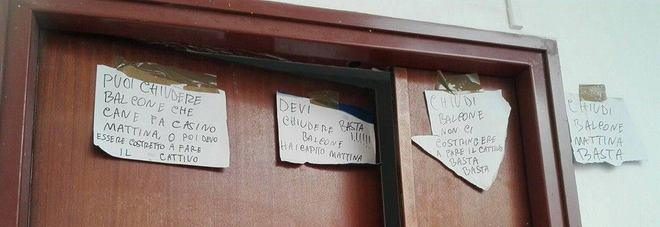 PUOI CHIUDERE
BALCONE CHE
CANE FA CASINO
MATTINA, O POI DEVO
ESSERE COSTRETTO A FARE
IL CATTIVO
DEVI
CHIUDERE BASTA
BALCONE !!!!!!
HAI CAPITO MATTINA
CHIUDI
BALCONE
NON CI
COSTRINGERE
A FARE IL CATTIVO
BASTA
BASTA
CHIUDI
BALCONE
MATTINA
BASTA